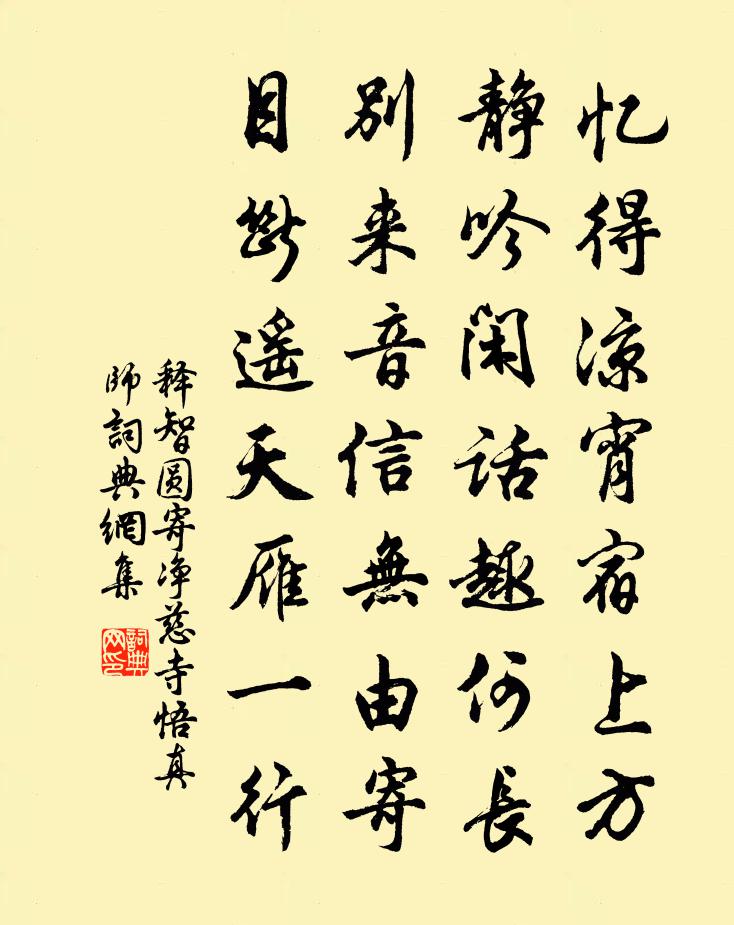 忆得凉宵宿上方
静吟闲话趣何長
别来音信無由寄
目断遥天雁一行
释智圆寄净慈寺悟真
師詞典網集
詞典
网印